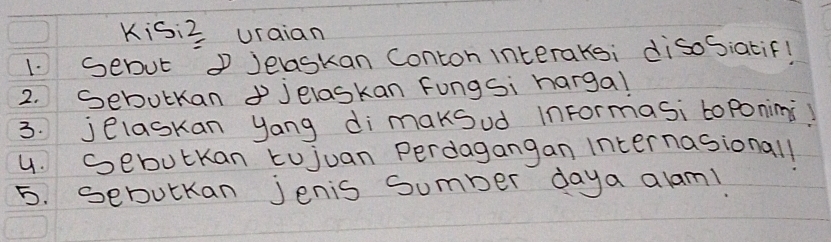 Kisi2 uraian
1. Sebut & Jelaskan Contoh interaksi disosiatif!
2. Sebutkan & jelaskan fungsi harga!
3. jelaskan yang di maksud informasi toponimi!
4. Sebutkan tujuan Perdagangan internasional!
5. Sebutkan jenis Sumber daya alam!